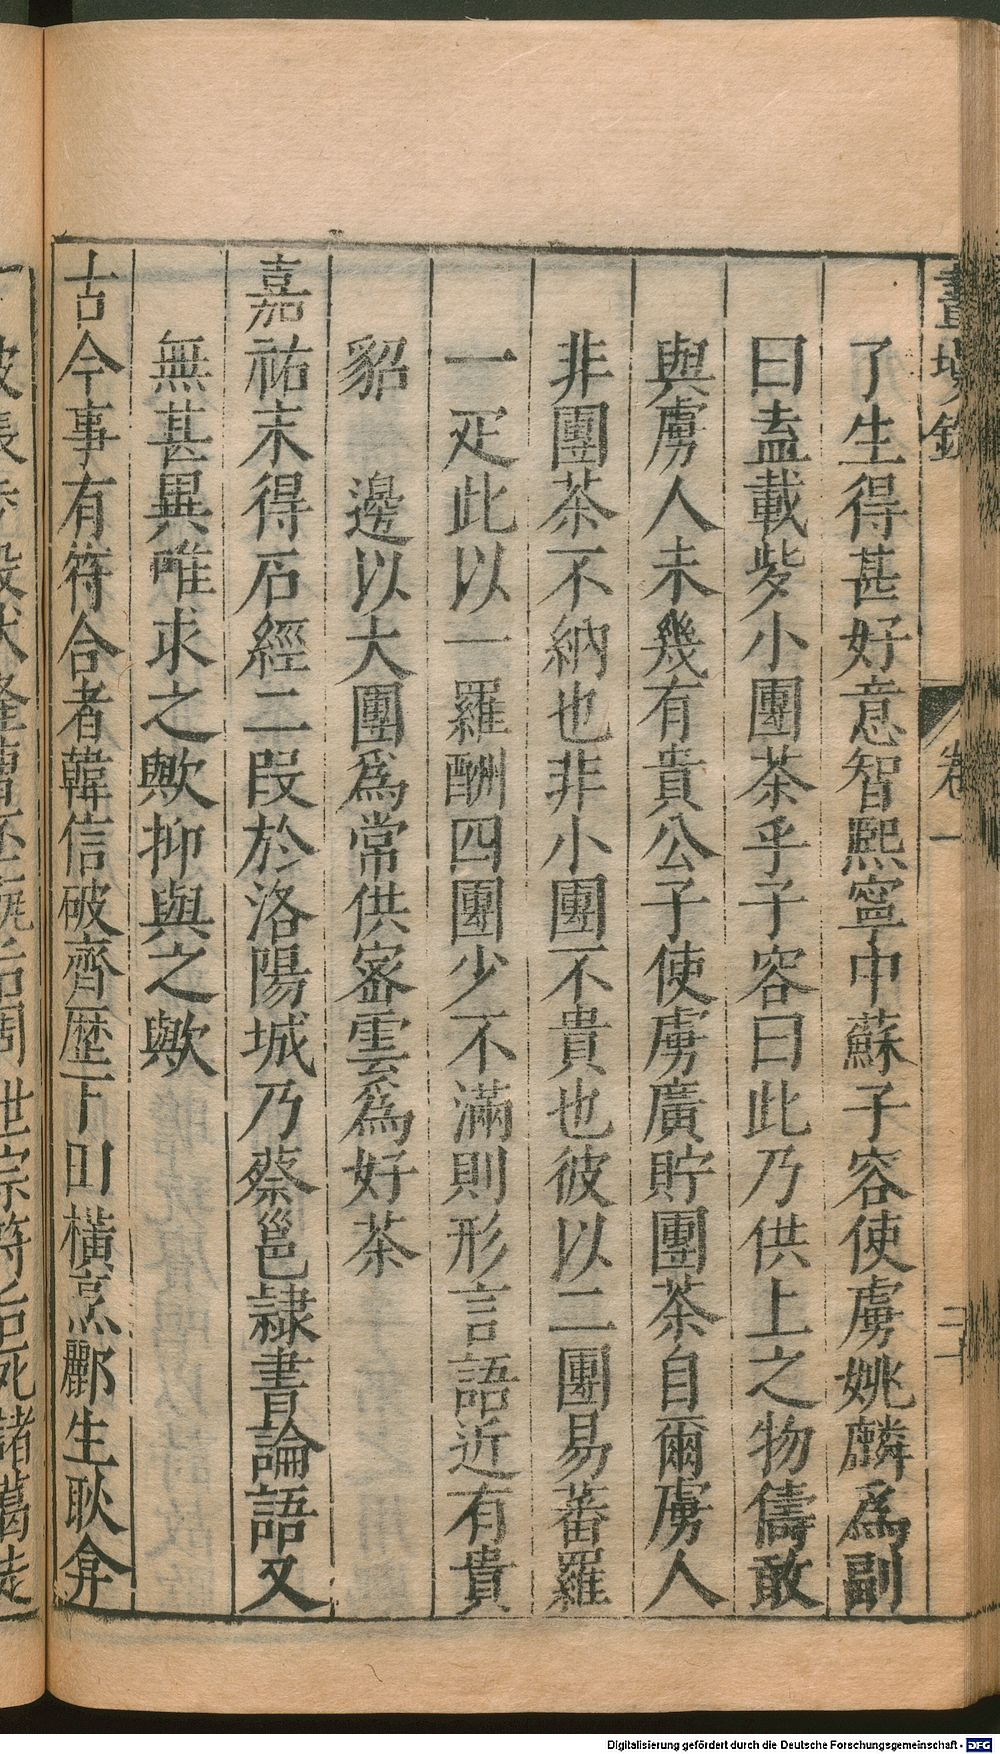 畫墁錄　卷一
了生得甚好意智熙寧中蘇子容使虜姚麟爲副
曰盍載些小團茶乎子容曰此乃供上之物儔敢
與虜人未幾有貴公子使虜廣貯團茶自爾虜人
非團茶不納也非小團不貴也彼以二團易蕃羅
一疋此以一羅酬四團少不滿則形言語近有貴
貂　邊以大團爲常供密雲爲好茶
嘉祐末得石經二段於洛陽城乃蔡邕隷書論語又
無甚異唯求之歟抑與之歟
古今事有符合者韓信破齊歷下田橫烹酈生耿弇
Digitalisierung gefördert durch die Deutsche Forschungsgemeinschaft - DFG